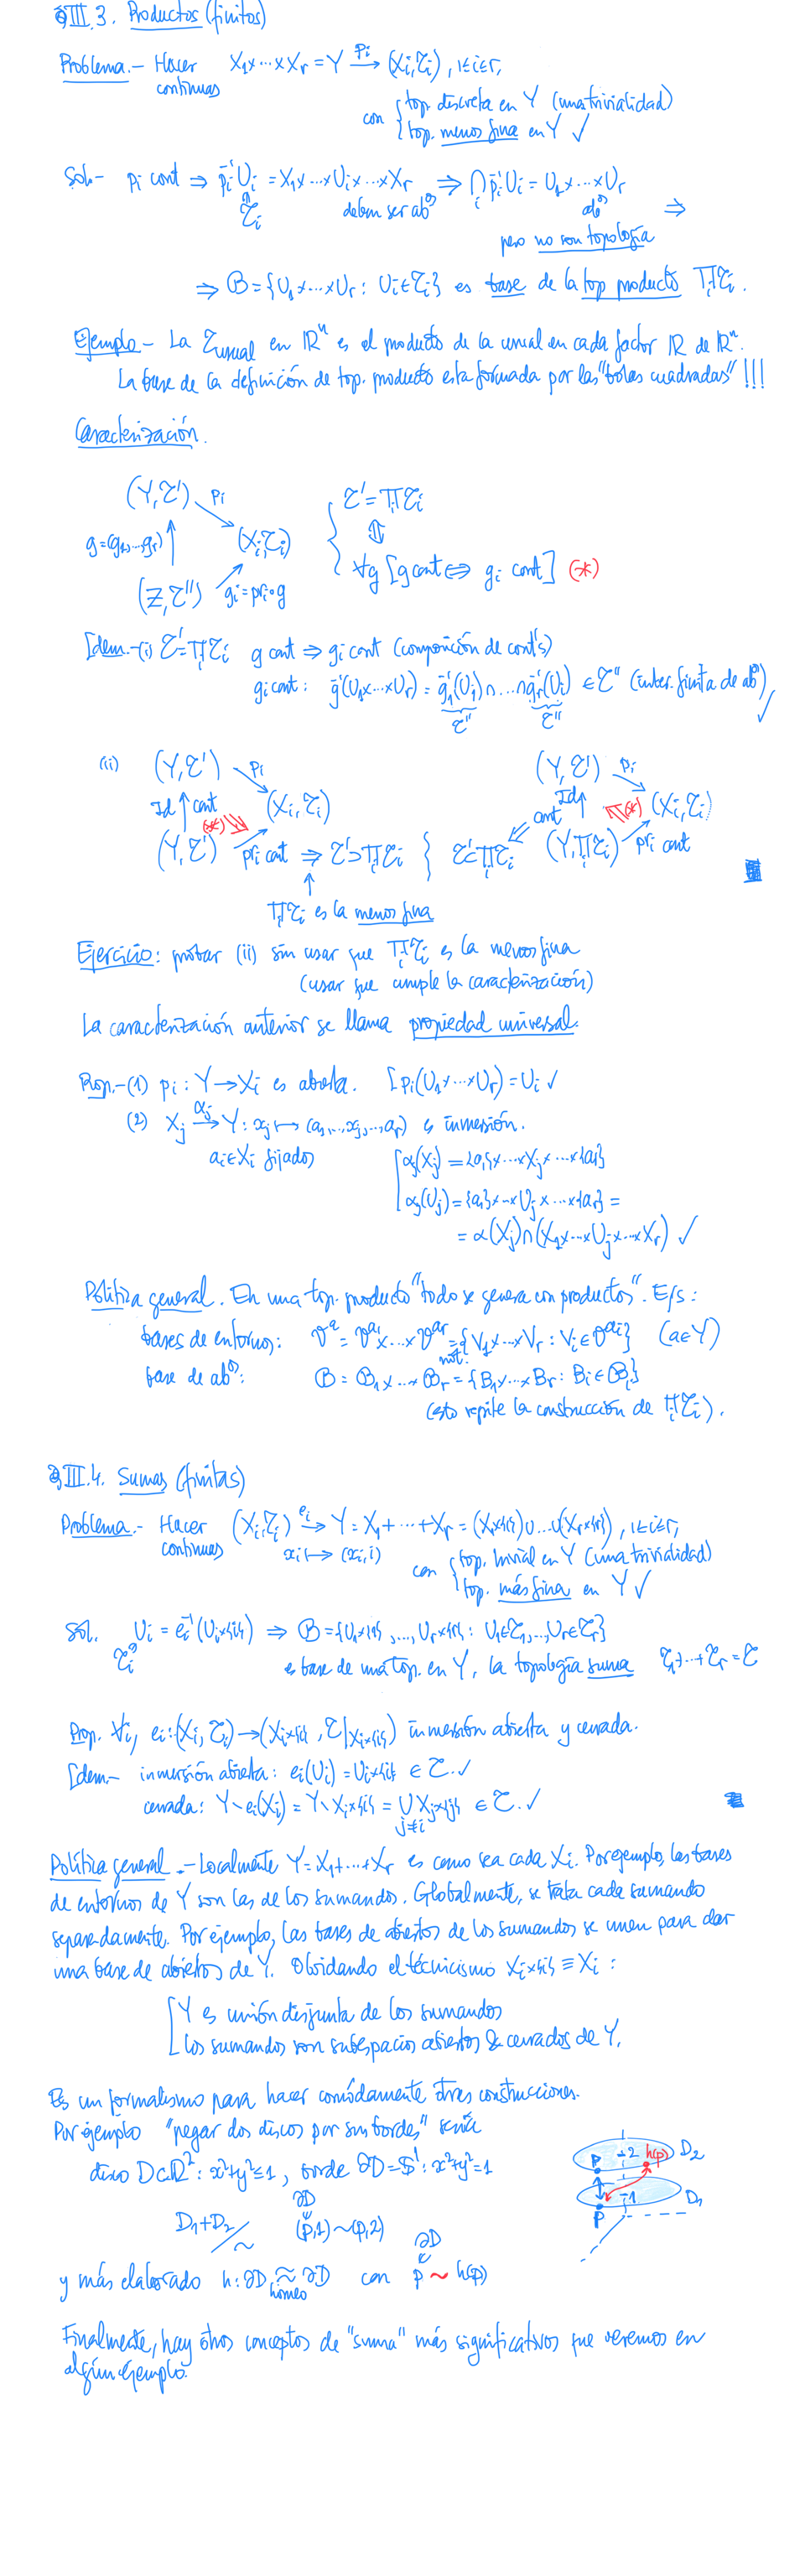 §III.3. Productos (finitos)
Problema.- Hacer continuas X₁×···×Xᵣ = Y →(pᵢ) (Xᵢ,τᵢ), 1≤i≤r,
con { top. discreta en Y (una trivialidad)
top. menos fina en Y ✓
Sol.- pᵢ cont ⇒ pᵢ⁻¹Uᵢ = X₁×···×Uᵢ×···×Xᵣ ⇒ ⋂ᵢ pᵢ⁻¹Uᵢ = U₁×···×Uᵣ
τᵢ deben ser abᵒˢ abᵒˢ ⇒
pero no son topología
⇒ B = {U₁×···×Uᵣ : Uᵢ∈τᵢ} es base de la top producto ∏ᵢτᵢ.
Ejemplo.- La τ_usual en ℝⁿ es el producto de la usual en cada factor ℝ de ℝⁿ.
La base de la definición de top. producto esta formada por las "bolas cuadradas" !!!
Caracterización.
(Y,τ') pᵢ { τ' = ∏ᵢτᵢ
g=(g₁,...,gᵣ) ↑ (Xᵢ,τᵢ) ⇕
(Z,τ'') gᵢ = prᵢ∘g ∀g [g cont ⇔ gᵢ cont] (*)
[Dem.-(i) τ' = ∏ᵢτᵢ g cont ⇒ gᵢ cont (composición de cont's)
gᵢ cont: g⁻¹(U₁×···×Uᵣ) = g₁⁻¹(U₁)∩...∩gᵣ⁻¹(Uᵣ) ∈ τ'' (inter. finita de abᵒˢ) ✓
τ'' τ''
(ii) (Y,τ') pᵢ (Y,τ') pᵢ
Id ↑ cont (*) (Xᵢ,τᵢ) cont Id ↑ (*) (Xᵢ,τᵢ)
(Y,τ') prᵢ cont ⇒ τ'⊃∏ᵢτᵢ } τ'⊂∏ᵢτᵢ (Y,∏ᵢτᵢ) prᵢ cont
∏ᵢτᵢ es la menos fina
Ejercicio: probar (ii) sin usar que ∏ᵢτᵢ es la menos fina
(usar que cumple la caracterización)
La caracterización anterior se llama propiedad universal.
Prop.-(1) pᵢ: Y→Xᵢ es abierta. [pᵢ(U₁×···×Uᵣ) = Uᵢ ✓
(2) Xⱼ →(αⱼ) Y : xⱼ ↦ (a₁,...,xⱼ,...,aᵣ) es inmersión.
aᵢ∈Xᵢ fijados [αⱼ(Xⱼ) = {a₁}×···×Xⱼ×···×{aᵣ}
αⱼ(Uⱼ) = {a₁}×···Uⱼ×···×{aᵣ} =
= α(Xⱼ)∩(X₁×···×Uⱼ×···×Xᵣ) ✓
Política general. En una top. producto "todo se genera con productos". Ejs:
bases de entornos: 𝒱ᵃ = 𝒱ᵃ¹×···𝒱ᵃʳ = {V₁×···Vᵣ : Vᵢ∈𝒱ᵃⁱ} (a∈Y)
not.
base de abᵒˢ: B = B₁×···Bᵣ = {B₁×···Bᵣ : Bᵢ∈Bᵢ}
(esto repite la construcción de ∏ᵢτᵢ).
§III.4. Sumas (finitas)
Problema.- Hacer continuas (Xᵢ,τᵢ) →(eᵢ) Y = X₁+···+Xᵣ = (X₁×{1})∪...∪(Xᵣ×{r}), 1≤i≤r,
xᵢ ↦ (xᵢ,i) con { top. trivial en Y (una trivialidad)
top. más fina en Y ✓
Sol. Uᵢ = eᵢ⁻¹(Uᵢ×{i}) ⇒ B = {U₁×{1},...,Uᵣ×{r} : U₁∈τ₁,...,Uᵣ∈τᵣ}
τᵢ es base de una top. en Y, la topología suma τ₁+···+τᵣ = τ
Prop. ∀i, eᵢ: (Xᵢ,τᵢ)→(Xᵢ×{i}, τ|Xᵢ×{i}) inmersión abierta y cerrada.
[Dem.- inmersión abierta: eᵢ(Uᵢ) = Uᵢ×{i} ∈ τ. ✓
cerrada: Y∖eᵢ(Xᵢ) = Y∖Xᵢ×{i} = ⋃_{j≠i} Xⱼ×{j} ∈ τ. ✓
Política general.- Localmente Y=X₁+···+Xᵣ es como sea cada Xᵢ. Por ejemplo, las bases
de entornos de Y son las de los sumandos. Globalmente, se trata cada sumando
separadamente. Por ejemplo, las bases de abiertos de los sumandos se unen para dar
una base de abiertos de Y. Olvidando el técnicismo Xᵢ×{i} ≡ Xᵢ :
[Y es unión disjunta de los sumandos
los sumandos son subespacios abiertos & cerrados de Y.
Es un formalismo para hacer comódamente otras construcciones.
Por ejemplo "pegar dos discos por sus bordes" sería
disco D⊂ℝ²: x²+y²≤1, borde ∂D=𝕊¹: x²+y²=1
D₁+D₂/∼ (p,1)∼(p,2)
∂D
y más elaborado h: ∂D ≈ ∂D con p ∼ h(p)
homeo
∂D
p 2 h(p) D₂
1 D₁
p
Finalmente, hay otros conceptos de "suma" más significativos que veremos en
algún ejemplo.